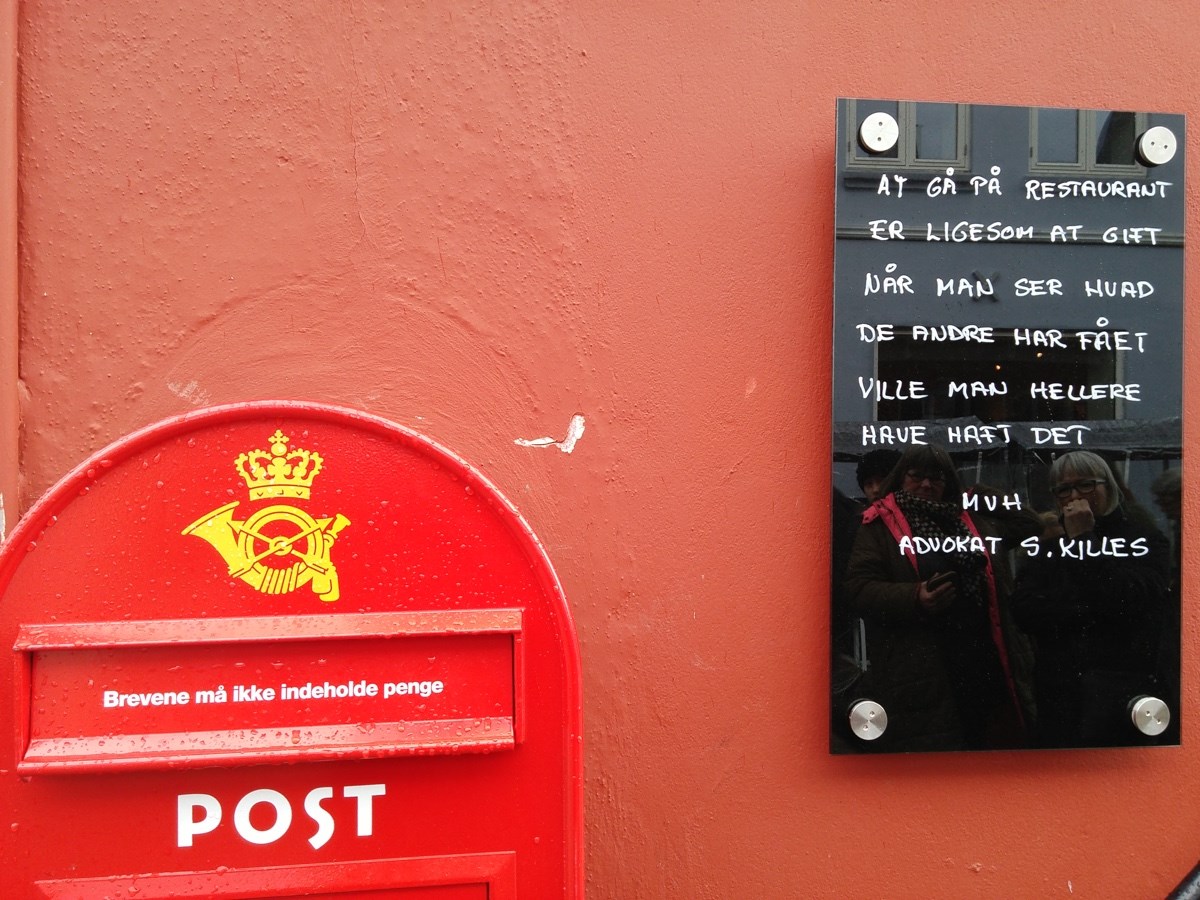 Brevene må ikke indeholde penge
POST
AT GÅ PÅ RESTAURANT
ER LIGESOM AT GIFT
NÅR MAN SER HVAD
DE ANDRE HAR FÅET
VILLE MAN HELLERE
HAVE HAFT DET
MVH
ADVOKAT S. KILLES